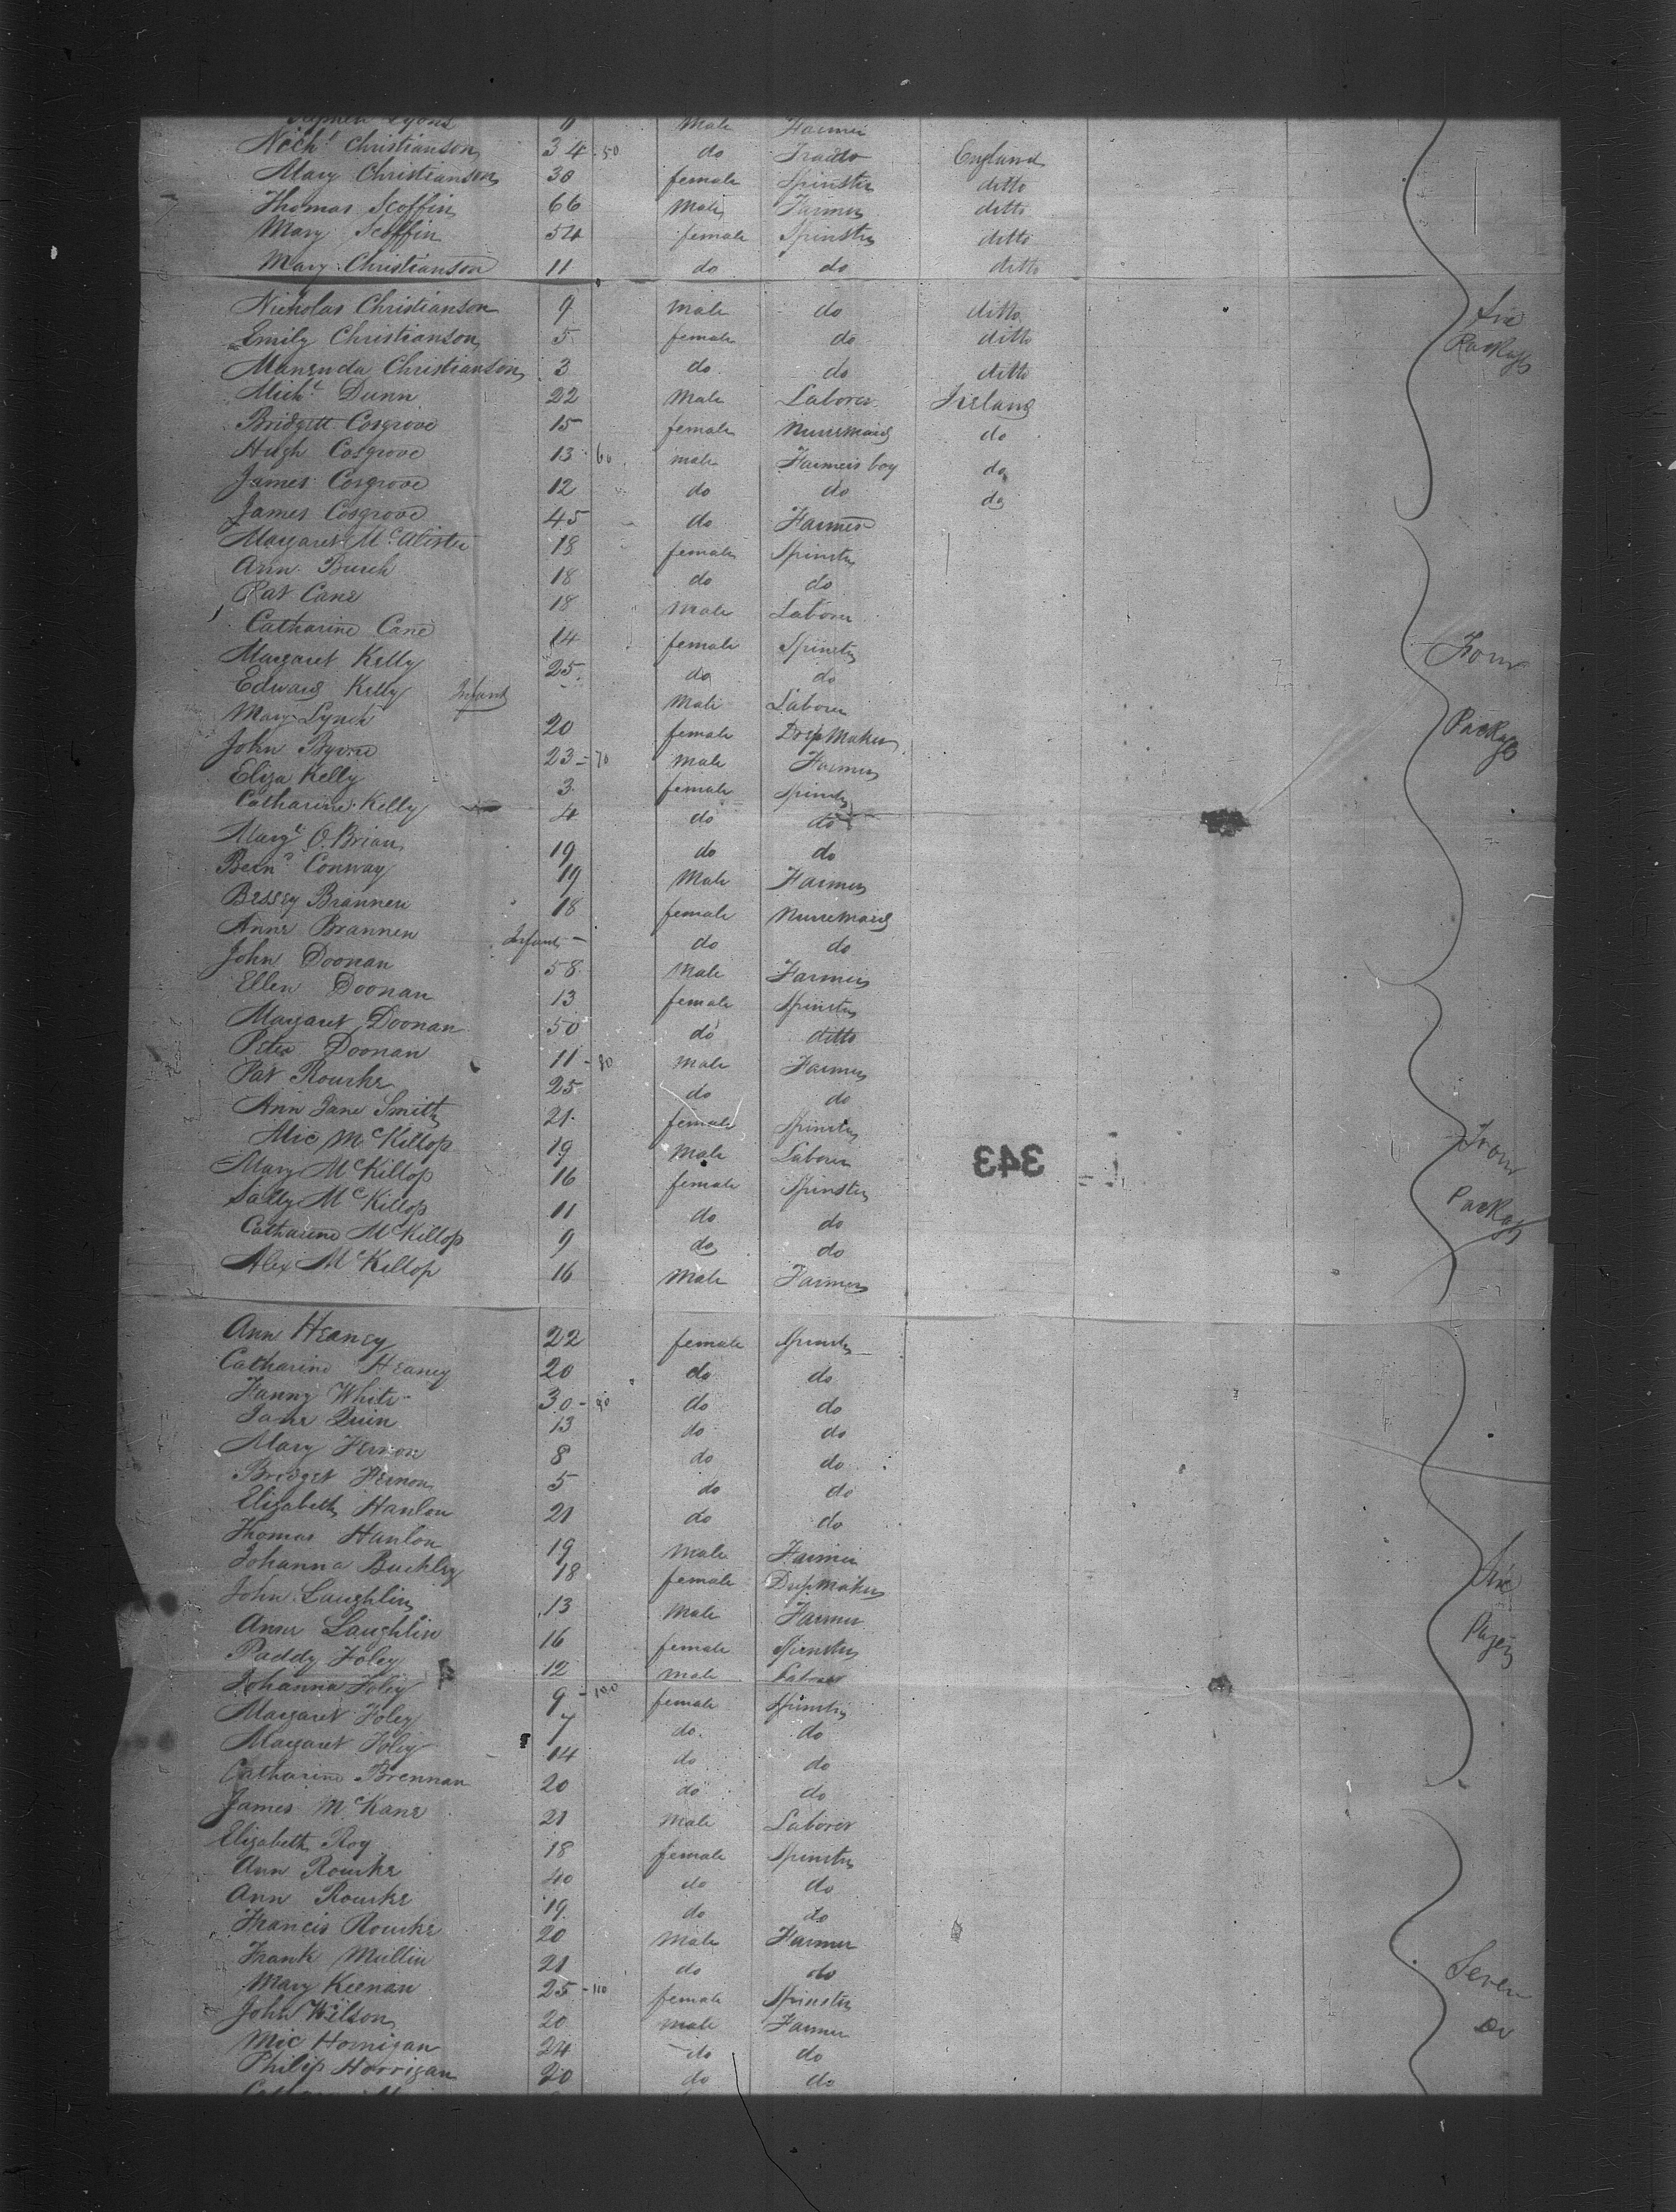 Stephen Lyons 9 Male Farmer
Nich.s Christianson 34 - 50 do England
Mary Christianson 30 female Spinster ditto
Thomas Scoffin 66 Male Farmer ditto
Mary Scoffin 54 female Spinster ditto
Mary Christianson 11 do do ditto
Nicholas Christianson 9 male do ditto
Emily Christianson 5 female do ditto
Christianson 3 do do ditto
Mich.l Dunn 22 Male Laborer Ireland
Bridgett Cosgrove 15 female Nursemaid do
Hugh Cosgrove 13 - 60 male Farmers boy do
James Cosgrove 12 do do do
James Cosgrove 45 do Farmer
Margaret McAlister 18 female Spinster
Ann 18 do do
Pat Cane 18 Male Laborer
Catharine Cane 14 female Spinster
Margaret Kelly 25 do do
Edward Kelly Infant Male Laborer
Mary Lynch 20 female DressMaker
John Byrne 23 - 70 male Farmer
Eliza Kelly 3 female Spinster
Catharine Kelly 4 do do
Marg.t O.Brian 19 do do
Bern.d Conway 19 Male Farmer
Bessey Brannen 18 female Nursemaid
Anne Brannen Infant - do do
John Doonan 58 Male Farmer
Ellen Doonan 13 female Spinster
Margaret Doonan 50 do ditto
Peter Doonan 11 - 80 Male Farmer
Pat Rourke 25 do do
Ann Jane Smith 21 female Spinster
Mic McKillop 19 Male Laborer
Mary McKillop 16 female Spinster
Sally McKillop 11 do do
Catharine McKillop 9 do do
Alex McKillop 16 Male Farmer
Ann Heaney 22 female Spinster
Catharine Heaney 20 do do
Fanny White 30 - 90 do do
Jane Quin 13 do do
Mary 8 do do
Bridget 5 do do
Elizabeth Hanlon 21 do do
Thomas Hanlon 19 Male Farmer
Johanna Buckley 18 female DressMaker
John Laughlin 13 Male Farmer
Anne Laughlin 16 female Spinster
Paddy Foley 12 male Laborer
Johanna Foley 9 - 100 female Spinster
Margaret Foley 7 do do
Margaret Foley 14 do do
Catharine Brennan 20 do do
James McKane 21 Male Laborer
Elizabeth Roy 18 female Spinster
Ann Rourke 40 do do
Ann Rourke 19 do do
Francis Rourke 20 Male Farmer
Frank Mullin 21 do do
Mary Keenan 25 - 110 female Spinster
John Wilson 20 male Farmer
Mic Hornigan 24 do do
Philip Horrigan 20 do do
Five
Packages
Four
Packages
Four
Packages
Five
Seven
Do
343